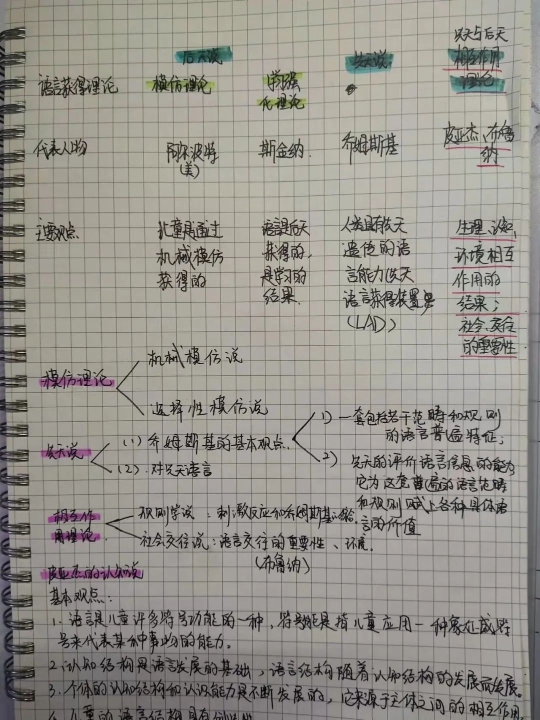 后天说 先天说 先天与后天
相互作用
理论
语言获得理论 模仿理论 强
化理论
代表人物 阿尔波特
(美) 斯金纳 乔姆斯基 皮亚杰、布鲁
纳
主要观点 儿童是通过 语言是后天 人类具有先天 生理、认知、
机械模仿 获得的, 遗传的语 环境相互
获得的 是学习的 言能力 先天 作用的
结果. 语言获得装置 结果;
(LAD) 社会交往
的重要性
模仿理论 机械模仿说
选择性模仿说
先天说 (1) 乔姆斯基的基本观点 1) 一套包括若干范畴和规则
的语言普遍特征;
(2). 对先天语言 2) 先天的评价语言信息的能力
它为这套普遍的语言范畴
和规则赋上各种具体语
言的价值
相互作
用理论 规则学说:刺激反应和乔姆斯基
社会交往说:语言交往的重要性、环境.
(布鲁纳)
皮亚杰的认知说
基本观点:
1. 语言是儿童许多符号功能的一种,符号功能是指儿童应用一种象征或符
号来代表某种事物的能力。
2. 认知结构是语言发展的基础,语言结构随着认知结构的发展而发展。
3. 个体的认知结构和认识能力是不断发展的,它来源于主体之间的相互作用
儿童的语言结构具有创造性